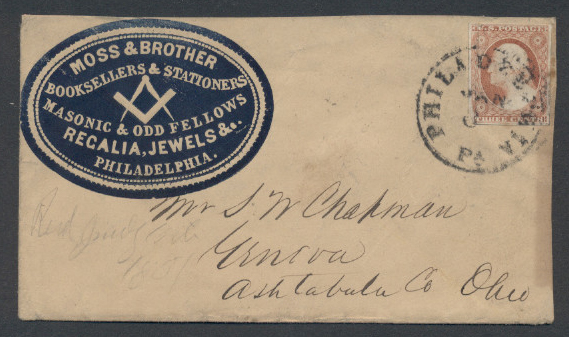 MOSS & BROTHER
BOOKSELLERS & STATIONERS
MASONIC & ODD FELLOWS
REGALIA, JEWELS &c.
PHILADELPHIA.
U.S. POSTAGE
THREE CENTS
PHILADELPHIA
Pa.
Mr S. W Chapman
Geneva
Ashtabula Co Ohio